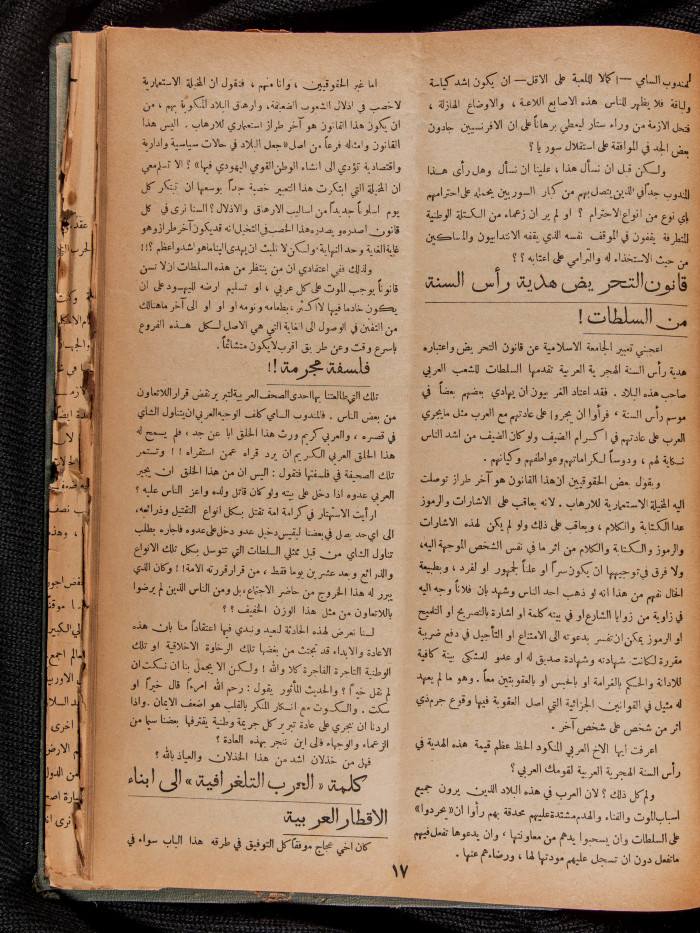 للمندوب السامي — اكمالا للعبة على الاقل — ان يكون اشد كياسة
ولباقة فلا يظهر للناس هذه الاصابع اللاعبة ، والاوضاع الهازلة ،
فتحل الازمة من وراء ستار ليعطي برهاناً على ان الافرنسيين جادون
بعض الجد في الموافقة على استقلال سوريا ؟
ولكن قبل ان نسأل هذا ، علينا ان نسأل وهل رأى هذا
المندوب جداً في الذين يتصل بهم من كبار السوريين يحمله على احترامهم
باي نوع من انواع الاحترام ؟ او لم ير ان زعماء من الكتلة الوطنية
المتطرفة يقفون في الموقف نفسه الذي يقفه الانتدابيون والمساكين
من حيث الاستخذاء له والترامي على اعتابه ؟ ؟
قانون التحريض هدية رأس السنة
من السلطات !
اعجبني تعبير الجامعة الاسلامية عن قانون التحريض واعتباره
هدية رأس السنة الهجرية العربية تقدمها السلطات للشعب العربي
صاحب هذه البلاد . فقد اعتاد الغربيون ان يهادي بعضهم بعضاً في
موسم رأس السنة ، فرأوا ان يجروا على عادتهم مع العرب مثل ما يجري
العرب على عادتهم في اكرام الضيف ولو كان الضيف من اشد الناس
نكاية لهم ، ودوساً لكراماتهم وعواطفهم وكيانهم .
ويقول بعض الحقوقيين ان هذا القانون هو آخر طراز توصلت
اليه المخيلة الاستعمارية للارهاب . لانه يعاقب على الاشارات والرموز
عدا الكتابة والكلام ، ويعاقب على ذلك ولو لم يكن لهذه الاشارات
والرموز والكتابة والكلام من اثر ما في نفس الشخص الموجهة اليه،
ولا فرق في توجيهها ان يكون سراً او علناً لجمهور او لفرد ، وبطبيعة
الحال نفهم من هذا انه لو ذهب احد الناس وشهد بان فلاناً وجه اليه
في زاوية من زوايا الشارع او في بيته كلمة او اشارة بالتصريح او التلميح
او الرموز يمكن ان تفسر بدعوته الى الامتناع او التأجيل في دفع ضريبة
مقررة لكانت شهادته وشهادة صديق له او عدو للمشكى بينة كافية
للادانة والحكم بالغرامة او بالحبس او بالعقوبتين معاً . وهو ما لم يعهد
له مثيل في القوانين الجزائية التي اصل العقوبة فيها وقوع جرم ذي
اثر من شخص على شخص آخر .
اعرفت ايها الاخ العربي المنكود الحظ عظم قيمة هذه الهدية في
رأس السنة الهجرية العربية لقومك العربي ؟
ولم كل ذلك ؟ لان العرب في هذه البلاد الذين يرون جميع
اسباب الموت والفناء والهدم مشتدة عليهم محدقة بهم رأوا ان «يحردوا»
على السلطات وان يسحبوا يدهم من معاونتها ، وان يدعوها تفعل فيهم
ما تفعل دون ان تسجل عليهم مودتها لها ، ورضاءهم عنها .
اما غير الحقوقيين ، وانا منهم ، فنقول ان المخيلة الاستعمارية
لاخصب في اذلال الشعوب الضعيفة، وارهاق البلاد المنكوبة بهم ، من
ان يكون هذا القانون هو آخر طراز استعماري للارهاب . اليس هذا
القانون وامثاله فرعاً من اصل «جعل البلاد في حالات سياسية وادارية
واقتصادية تؤدي الى انشاء الوطن القومي اليهودي فيها» ؟ الا تسلم معي
ان المخيلة التي ابتكرت هذا التعبير خصبة جداً بوسعها ان تبتكر كل
يوم اسلوباً جديداً من اساليب الارهاق والاذلال ؟ السنا نرى في كل
قانون اصدروه ويصدره هذا الخصب في التخيل انه قد يكون آخر طراز وهو
غاية الغاية وحد النهاية، ولكن لا نلبث ان يهدى الينا ما هو اشد واعظم ؟!!
ولذلك ففي اعتقادي ان من ينتظر من هذه السلطات ان لا تسن
قانوناً يوجب الموت على كل عربي ، او تسليم ارضه لليهود على ان
يكون خادما فيها لا اكثر، بطعامه ونومه او او او الى آخر ما هنالك
من التفنن في الوصول الى الغاية التي هي الاصل لكل هذه الفروع
باسرع وقت وعن طريق اقرب لا يكون متشائماً .
فلسفة مجرمة !!
تلك التي طالعتنا بها احدى الصحف العربية لتبرير نقض قرار اللاتعاون
من بعض الناس . فالمندوب السامي كلف الوجيه العربي ان يتناول الشاي
في قصره ، والعربي كريم ورث هذا الخلق ابا عن جد ، فلم يسمح له
هذا الخلق العربي الكريم ان يرد قراه عمن استقراه !! وتستمر
تلك الصحيفة في فلسفتها فتقول : اليس ان من هذا الخلق ان يجير
العربي عدوه اذا دخل على بيته ولو كان قاتل ولده واعز الناس عليه ؟
ارأيت الاستهتار في كرامة امة تقتل بكل انواع التقتيل وذرائعه،
الى اي حد يصل في بعضنا ليقيس دخيل عدو دخل على عدوه فاجاره بطلب
تناول الشاي من قبل ممثلي السلطات التي تتوسل بكل تلك الانواع
والذرائع وبعد عشرين يوما فقط ، من قرار قررته الامة ! وكان الذي
يبرر له هذا الخروج من حاضر الاجتماع، بل ومن الناس الذين لم يرضوا
باللاتعاون من مثل هذا الوزن الخفيف ؟ ؟
لسنا نعرض لهذه الحادثة لنعيد ونبدي فيها اعتقاداً منا بان هذه
الاعادة والابداء قد تجتث من بعضها تلك الرخاوة الاخلاقية او تلك
الوطنية التاجرة الفاجرة كلا والله ! ولكن الا يجمل بنا ان نسكت ان
لم نقل خيراً ؟ والحديث المأثور يقول : رحم الله امرءاً قال خيراً او
سكت . والسكوت مع انكار المنكر بالقلب هو اضعف الايمان . واذا
اردنا ان نجري على عادة تبرير كل جريمة وطنية يقترفها بعضنا سيما من
الزعماء والوجهاء فالى اين ننجر بهذه العادة ؟
فهل من خذلان اشد من هذا الخذلان والعياذ بالله ؟
كلمة «العرب التلغرافية» الى ابناء
الاقطار العربية
كان اخي عجاج موفقاً كل التوفيق في طرقه هذا الباب سواء في
١٧